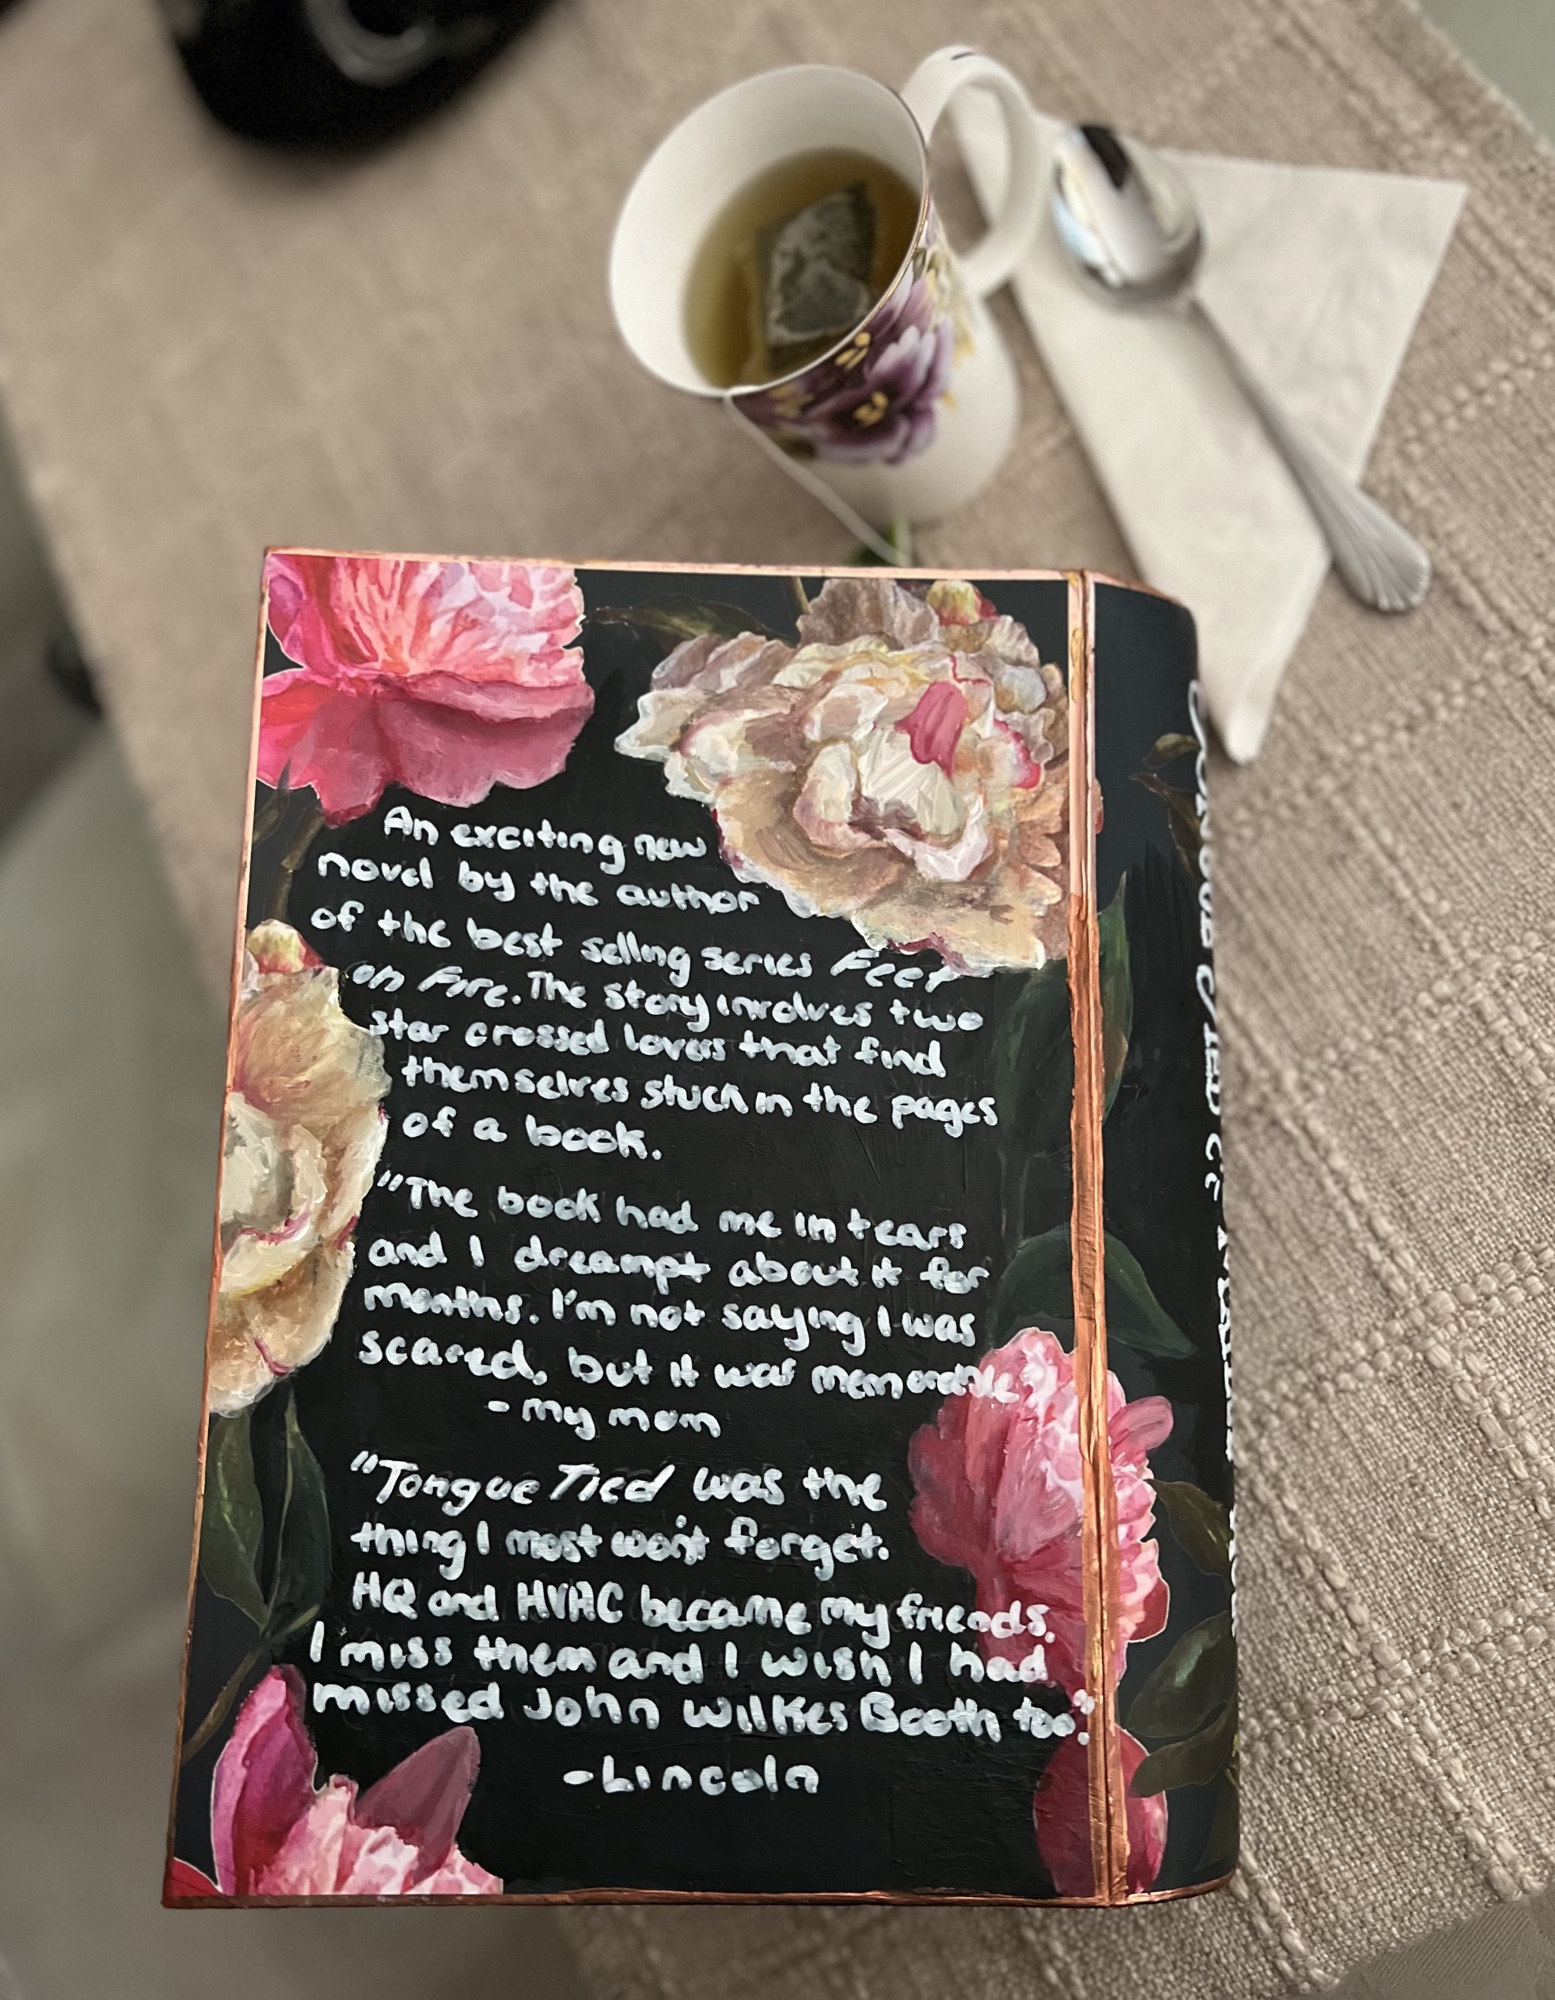 An exciting new
novel by the author
of the best selling series Feet
on Fire. The story involves two
star crossed lovers that find
themselves stuck in the pages
of a book.
"The book had me in tears
and I dreampt about it for
months. I'm not saying I was
scared, but it was memorable"
- my mom
"Tongue Tied was the
thing I most won't forget.
HQ and HVAC became my friends.
I miss them and I wish I had
missed John Wilkes Booth too."
- Lincoln
Tongue Tied